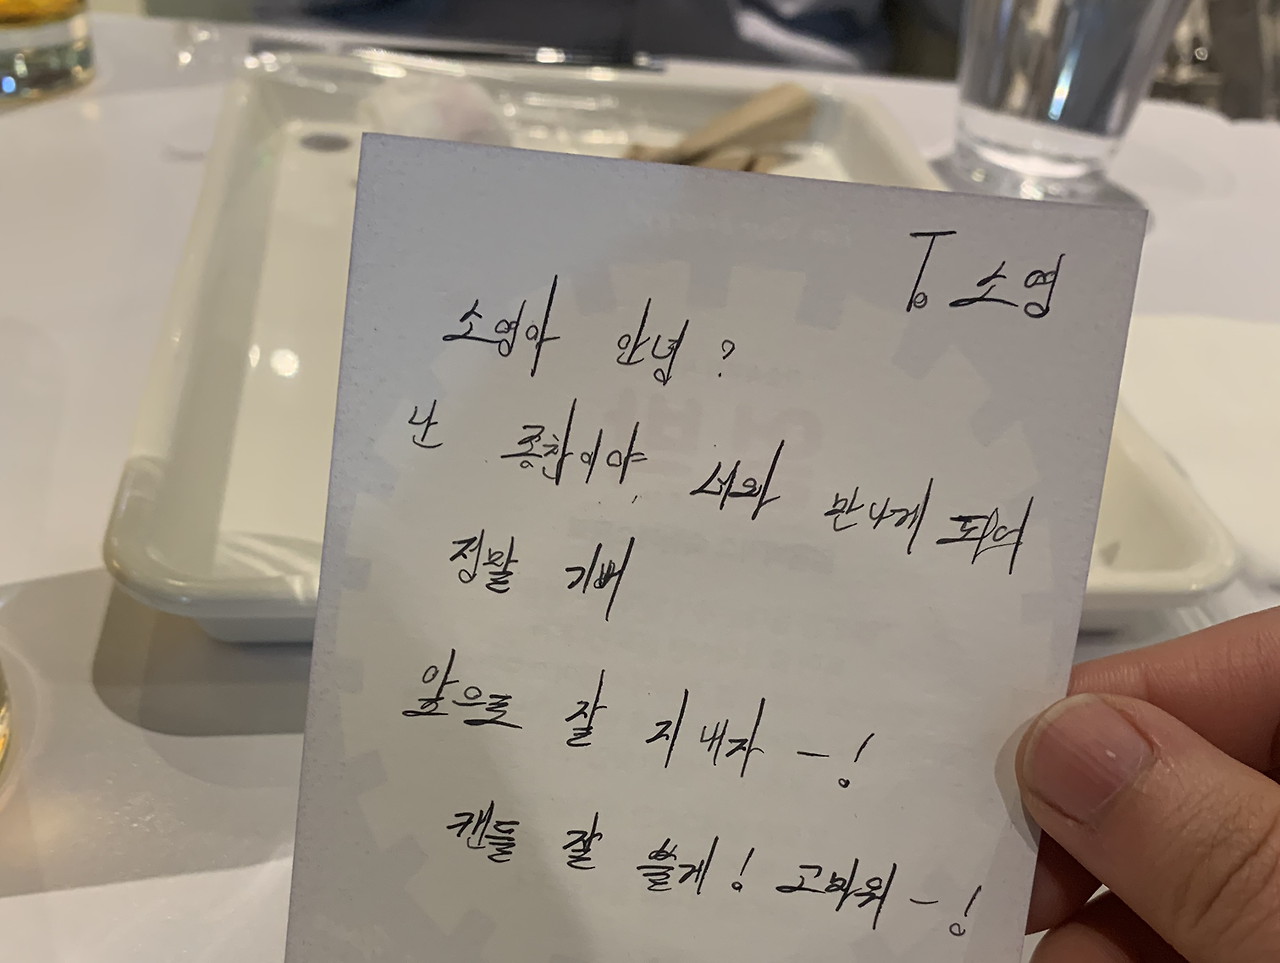 To. 소영
소영아 안녕?
난 종찬이야, 너와 만나게 되어
정말 기뻐
앞으로 잘 지내자 -!
캔들 잘 쓸게! 고마워 -!